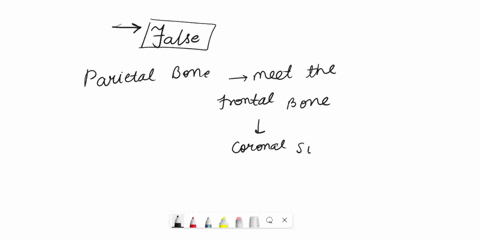 → False
Parietal Bone → meet the
Frontal Bone
↓
Coronal S